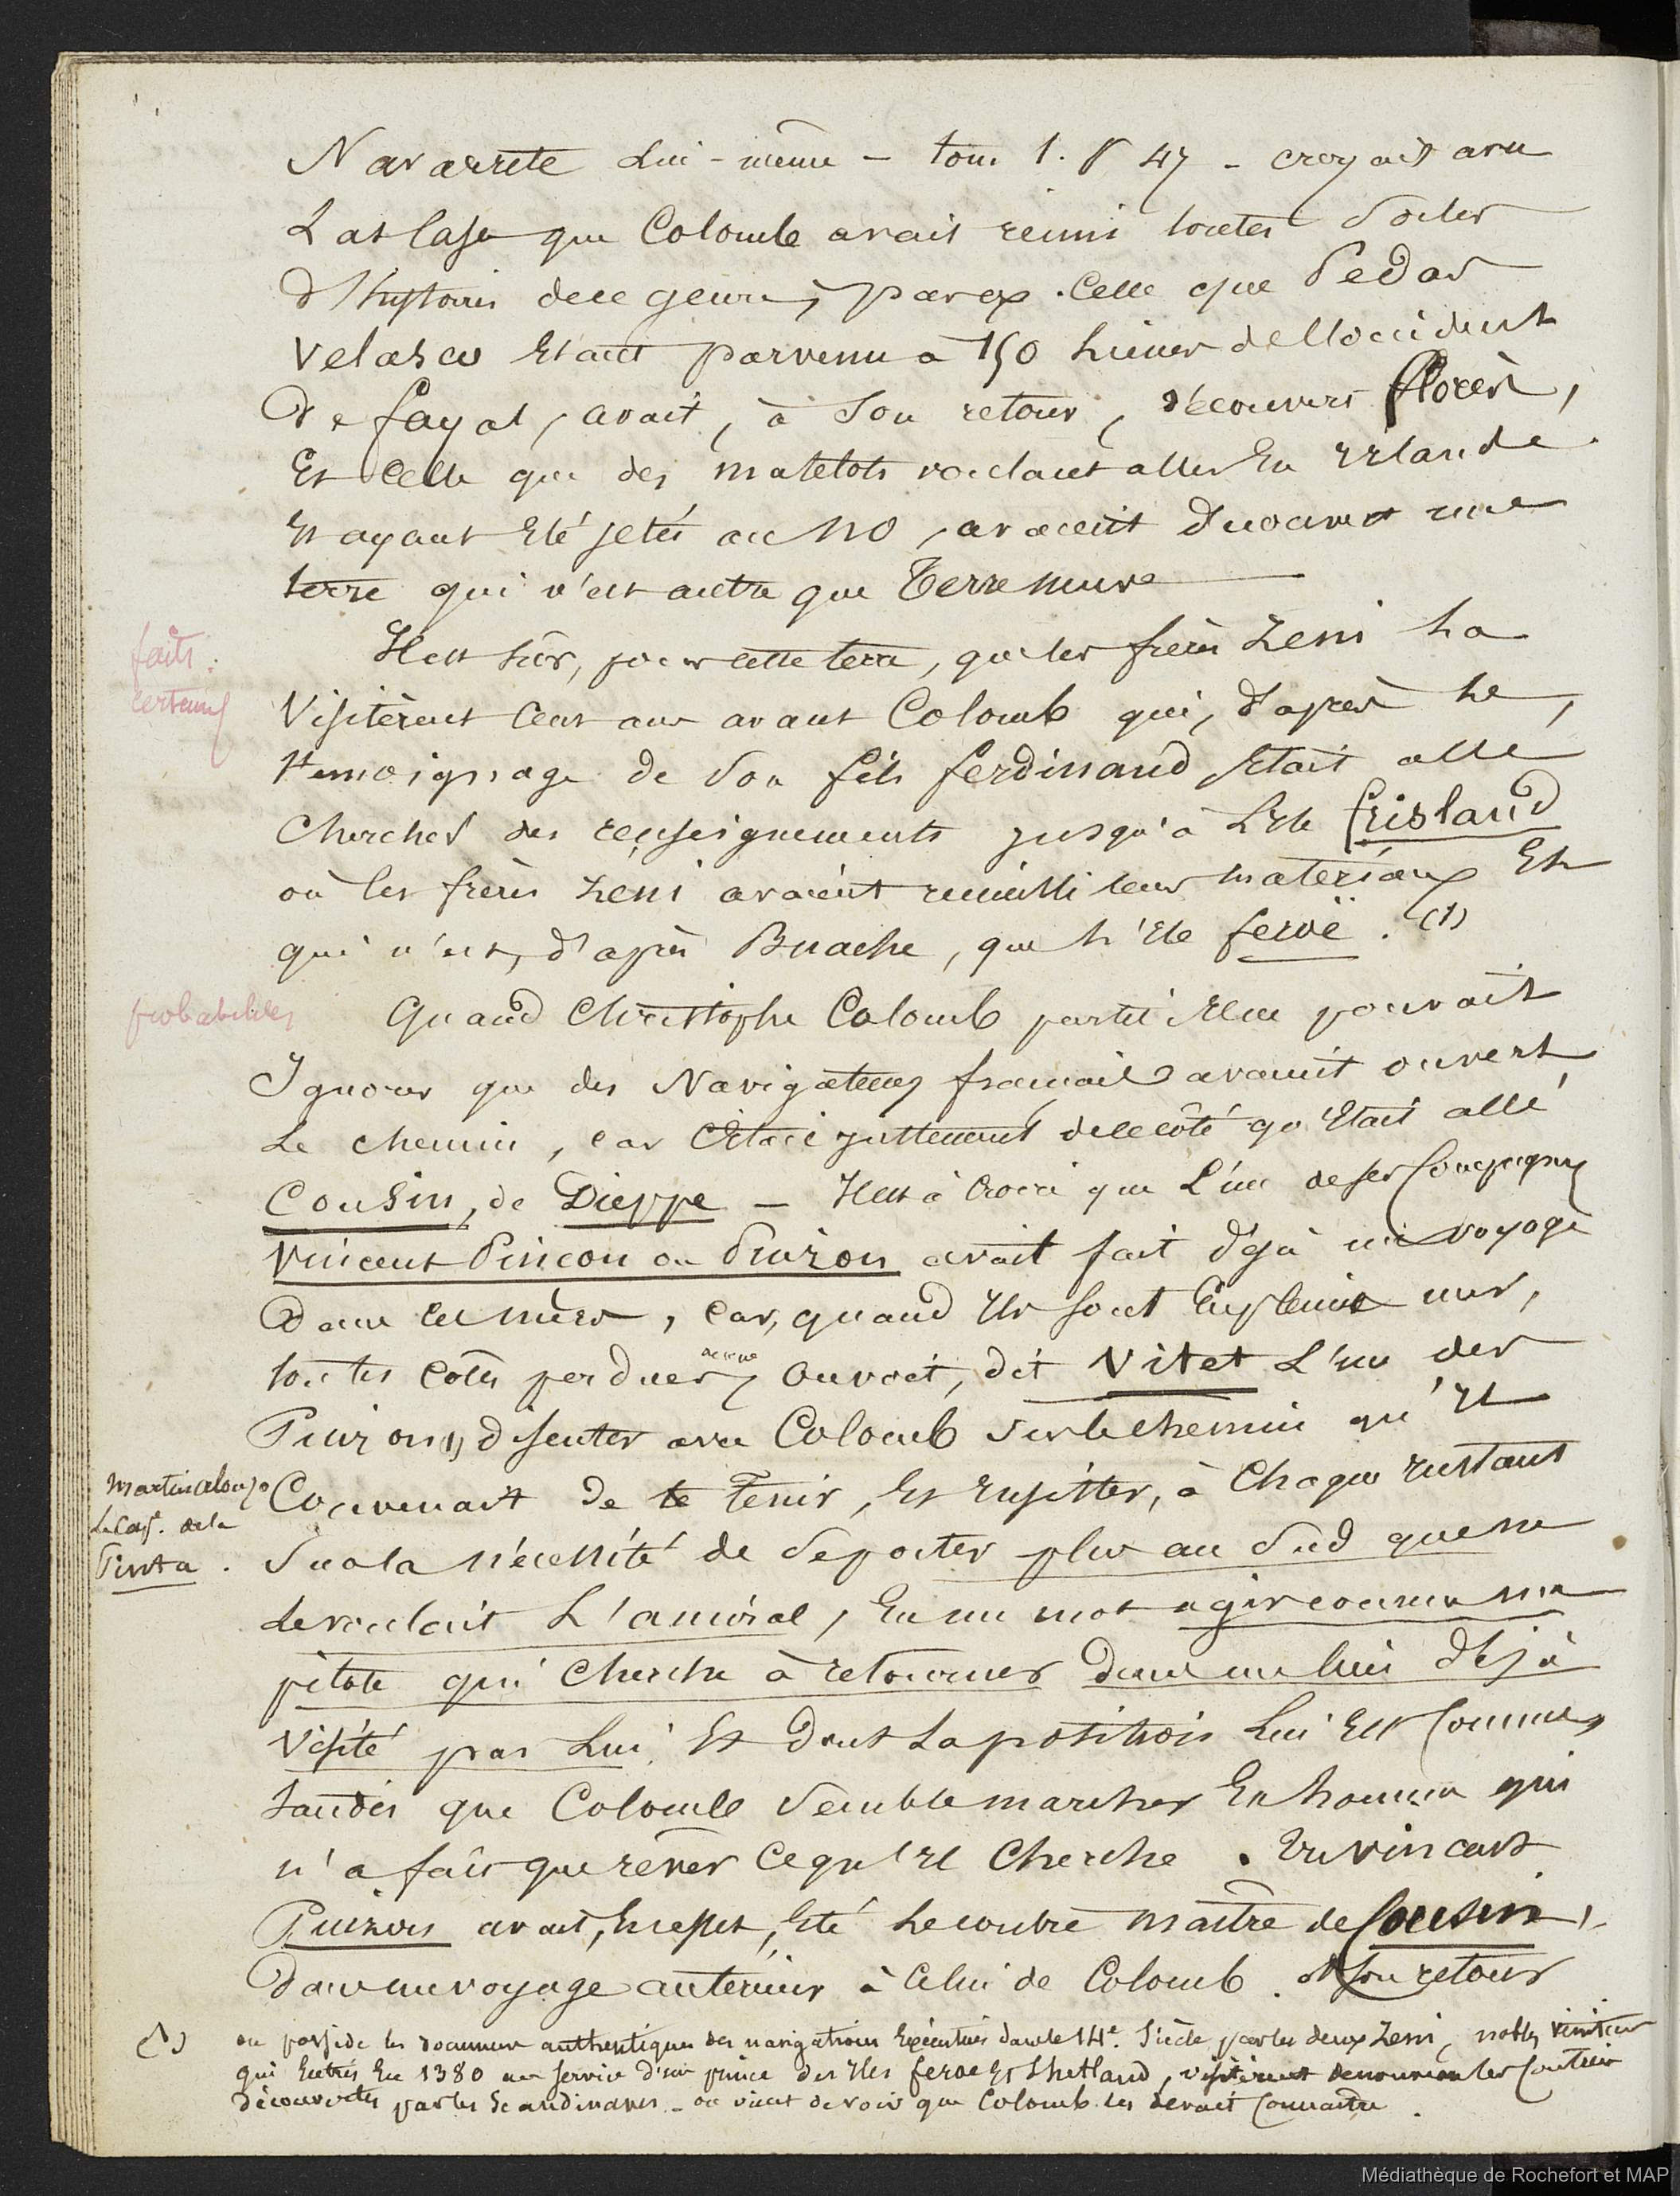 Navarrete lui-même - tom 1. p 47 - croyait avec
Las Casas que Colomb avait réuni toutes sortes
d'histoires de ce genre, par ex. celle que Pedro
Velasco étant parvenu à 150 lieues de l'occident
de fayal, avait, à son retour, découvert florès,
Et celle que des matelots voulant aller En Irlande
Et ayant Eté jetés au NO, avaient découvert une
terre qui n'est autre que Terre neuve
Il est sûr, pour cette terre, que les frères Zeni la
faits
certains
Visitèrent cent ans avant Colomb qui, d'après le
témoignage de son fils ferdinand était allé
chercher des renseignements jusqu'à l'Ile frisland
où les frères Zéni avaient recueilli leurs matériaux Et
qui n'est, d'après Buache, que l'Ile feroë. (1)
probabilités
Quand Christophe Colomb partit il ne pouvait
Ignorer que des Navigateurs français avaient ouvert
Le chemin, car c'était justement de ce côté qu'Etait allé
Cousin, de Dieppe - Il est à croire que l'un de ses compagnons
Vincent Pinçon ou Pinzon avait fait déjà un voyage
Dans ces mers, car, quand Ils sont En pleine mer,
toutes côtes perdues, on voit, dit Vitet l'un des
Pinzons, discuter avec Colomb sur le chemin qu'Il
Martin alonzo
Le Cap. de la
Pinta.
Convenait de te Tenir, Et insister, à chaque instant
Sur la nécessité de se porter plus au Sud que ne
le voulait L'amiral, En un mot agir comme un
pilote qui cherche à retourner dans un lieu déjà
Visité par Lui Et dont la position Lui Est connue,
tandis que Colomb semble marcher En homme qui
n'a fait que rêver ce qu'Il cherche. Ce vincent
Pinzon avait, En effet, Eté le contre maître de Cousin,
Dans un voyage antérieur à celui de Colomb. A son retour
(1) on possède les documens authentiques des navigations Exécutées dans le 14e. Siècle par les deux Zeni, nobles vénitiens
qui Entrés En 1380 au service d'un prince des Iles feroe Et Shetland, visitèrent de nouveau les contrées
découvertes par les Scandinaves - on vient de voir que Colomb les devait connaître.
Médiathèque de Rochefort et MAP